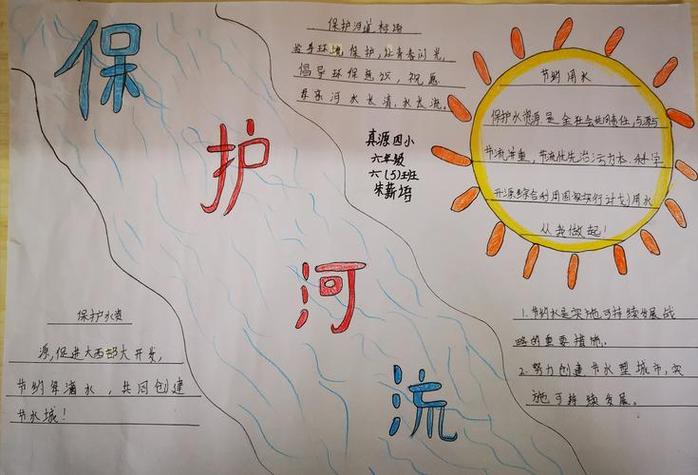 保
护
河
流
保护河道标语
倡导环保意识，祝愿
母亲河水长清，水长流。
真源四小
六年级
六(5)班
节约用水
保护水资源是全社会的责任，
节流并重，节流优先治污为本，科学
计划用水
从我做起！
保护水资
源，促进大西部大开发，
节约每滴水，共同创建
节水城！
1.节约水是实施可持续发展战
略的重要措施。
2.努力创建节水型城市，实
施可持续发展。